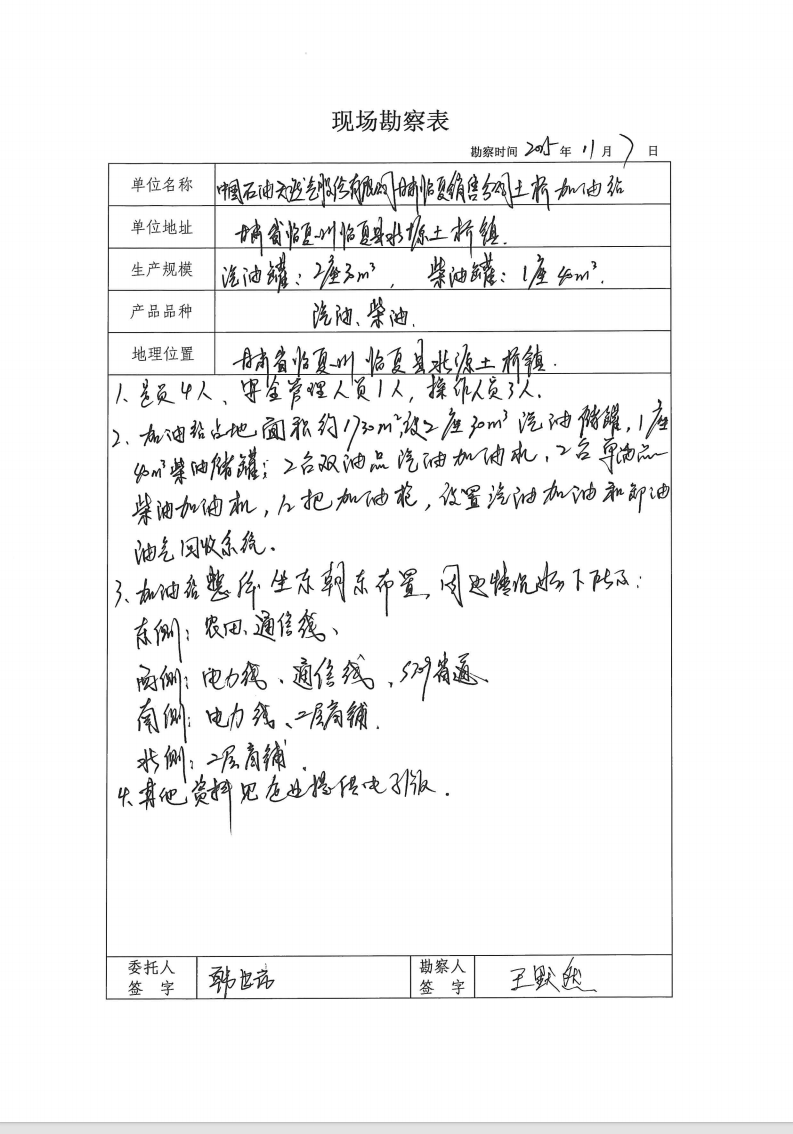 现场勘察表
勘察时间 2025 年 11 月 7 日
单位名称 中国石油天然气股份有限公司甘肃临夏销售分公司土桥加油站
单位地址 甘肃省临夏州临夏县北塬土桥镇.
生产规模 汽油罐：2座30m³， 柴油罐：1座40m³.
产品品种 汽油、柴油.
地理位置 甘肃省临夏州临夏县北源土桥镇.
1、定员4人、安全管理人员1人，操作人员3人.
2、加油站占地面积约1730m²,设2座30m³汽油储罐，1座
40m³柴油储罐；2台双油品汽油加油机，2台单油品
柴油加油机，12把加油枪，设置汽油加油和卸油
油气回收系统.
3、加油站整体坐东朝东布置，周边情况如下所示：
东侧：农田、通信线、
西侧：电力线、通信线、S309省道、
南侧：电力线、二层商铺.
北侧：二层商铺.
4、其他资料见企业提供电子版.
委托人 勘察人
签 字 签 字 王默然